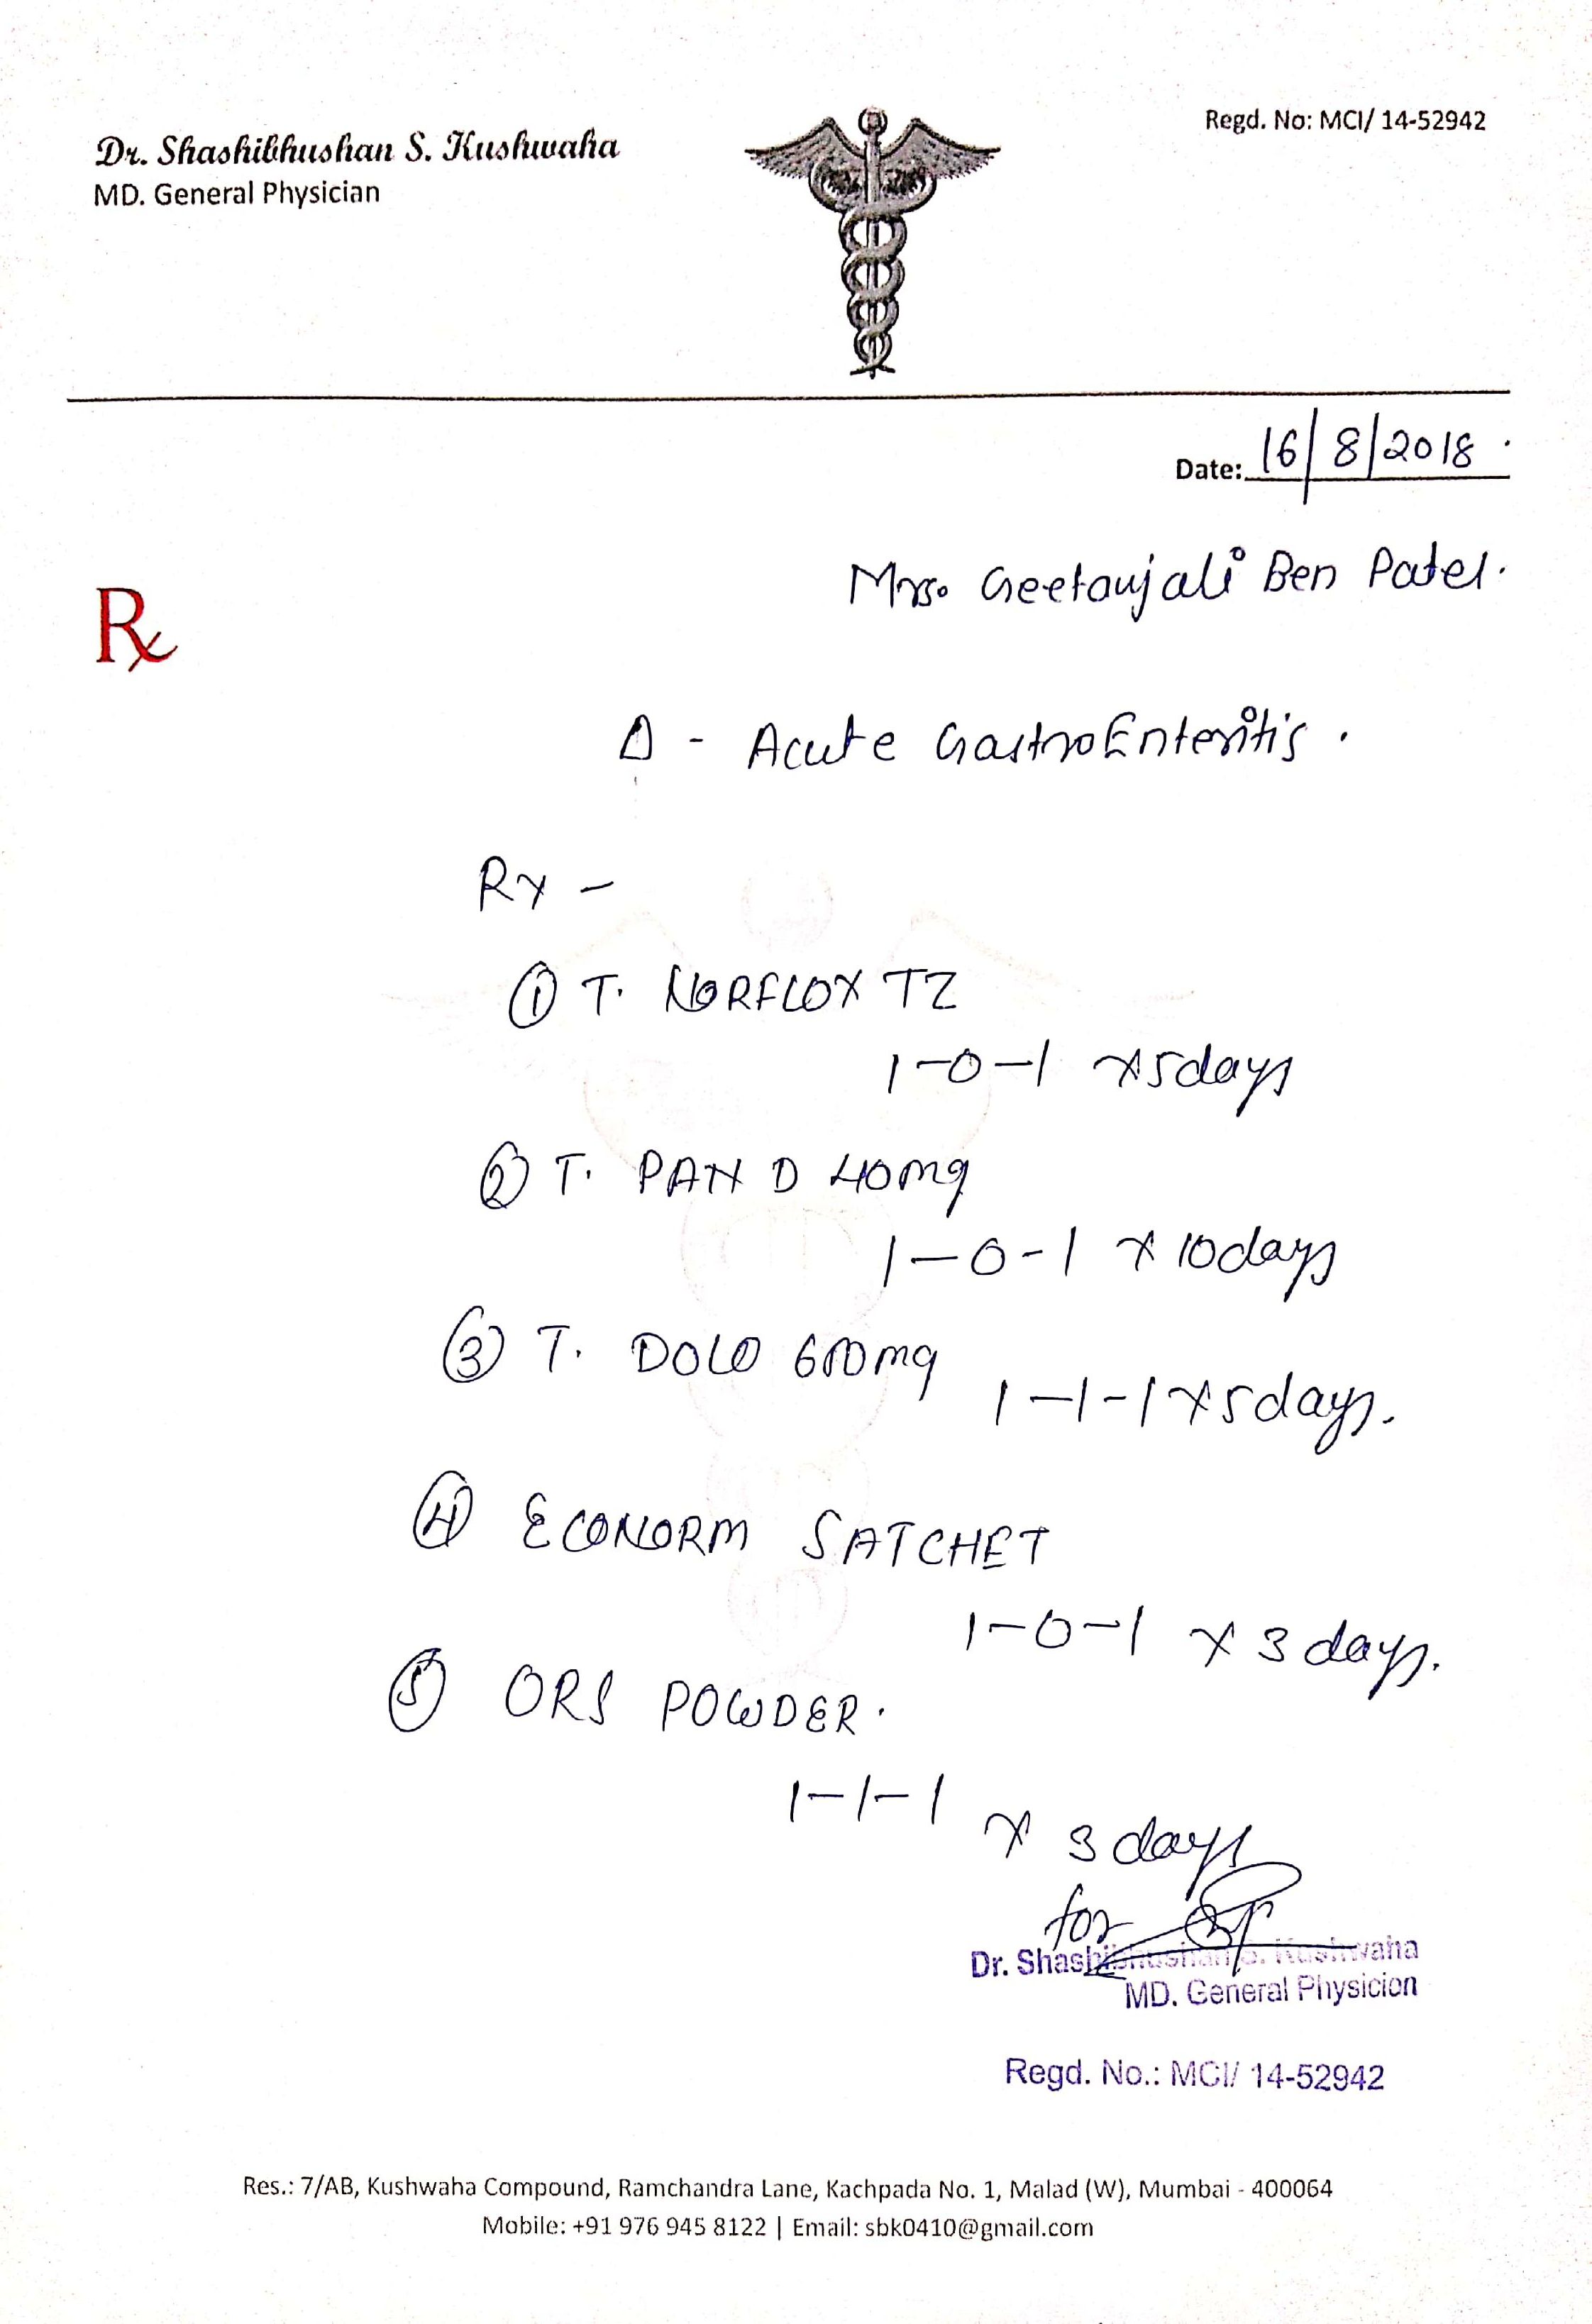 Dr. Shashibhushan S. Kushwaha
MD. General Physician
Regd. No: MCI/ 14-52942
Date: 16/8/2018.
Mrs. Geetanjali Ben Patel.
Rx
Δ - Acute GastroEnteritis.
Rx -
① T. NORFLOX TZ
1-0-1 x 5days
② T. PAN D 40mg
1-0-1 x 10days
③ T. DOLO 600mg
1-1-1 x 5days.
④ ECONORM SATCHET
1-0-1 x 3 days.
⑤ ORS POWDER.
1-1-1 x 3 days
for
Dr. Shashibhushan S. Kushwaha
MD. General Physicion
Regd. No.: MCI/ 14-52942
Res.: 7/AB, Kushwaha Compound, Ramchandra Lane, Kachpada No. 1, Malad (W), Mumbai - 400064
Mobile: +91 976 945 8122 | Email: sbk0410@gmail.com